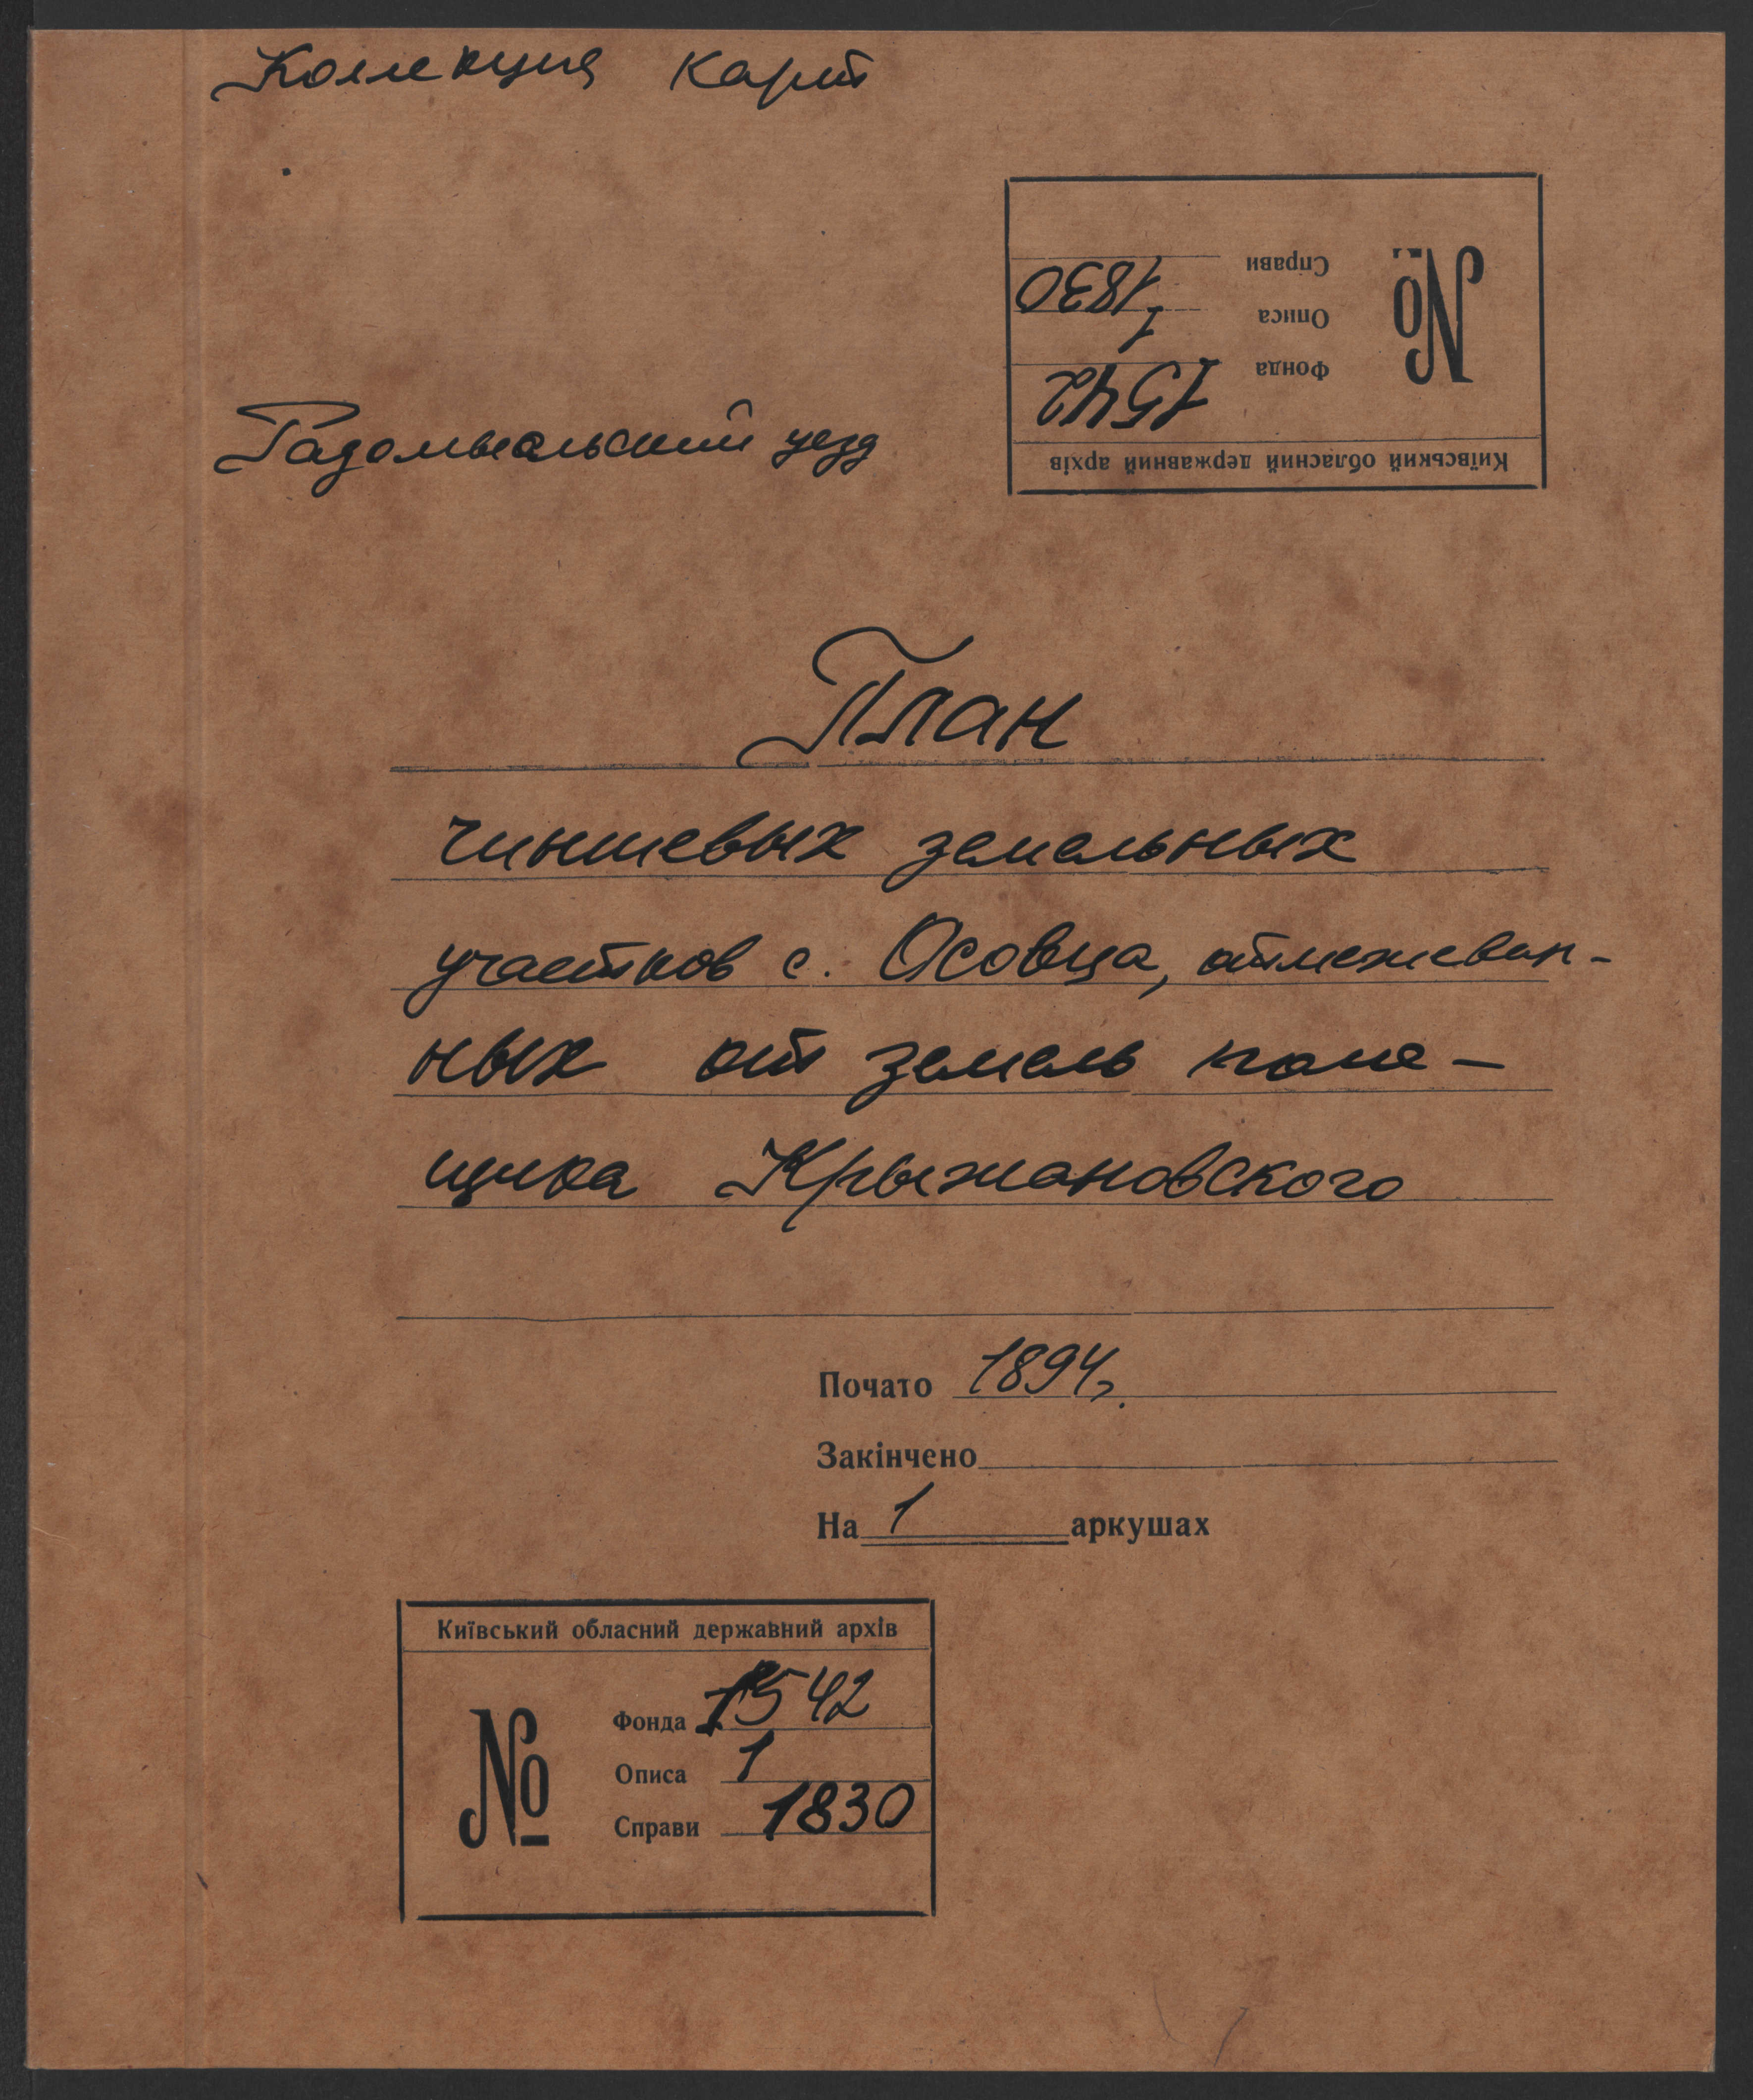 Коллекция карт
Справи 1830
Описа 1
Фонда 1542
№
Київський обласний державний архів
Радомысльский уезд
План
чиншевых земельных
участков с. Осовца, отмежеван-
ных от земель поме-
щика Крыжановского
Почато 1894 г.
Закінчено
На 1 аркушах
Київський обласний державний архів
№
Фонда 1542
Описа 1
Справи 1830